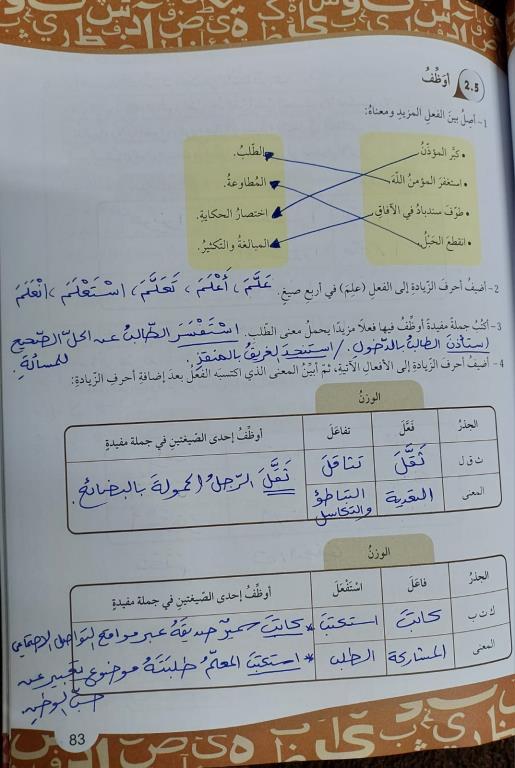 2.5 أُوَظِّفُ
1- أَصِلُ بينَ الفعلِ المزيدِ ومعناهُ:
• كبَّر المؤذّنُ
• استغفرَ المؤمنُ اللّهَ
• طوّفَ سندبادُ في الآفاقِ
• انقطعَ الحَبْلُ
الطّلبُ.
المُطاوعةُ.
اختصارُ الحكايةِ.
المبالغةُ والتّكثيرُ.
2- أضيفُ أحرفَ الزّيادةِ إلى الفعلِ (علِمَ) في أربعِ صيغٍ. عَلَّمَ، أَعْلَمَ، تَعَلَّمَ، اسْتَعْلَمَ، انْعَلَمَ
3- أكتُبُ جملةً مفيدةً أوظّفُ فيها فعلًا مزيدًا يحملُ معنى الطّلبِ. اسْتَفْسَرَ الطّالبُ عن الحلّ الصّحيح للمسألةِ.
استأذنَ الطالبُ بالدّخول. / استنجدَ الغريقُ بالمنقذِ.
4- أضيفُ أحرفَ الزّيادةِ إلى الأفعالِ الآتيةِ، ثمّ أبيّنُ المعنى الّذي اكتسبَه الفعلُ بعدَ إضافةِ أحرفِ الزّيادةِ:
الوزنُ
الجذرُ فَعَّلَ تفاعَلَ أوظّفُ إحدى الصّيغتينِ في جملة مفيدةٍ
ث ق ل ثَقَّلَ تثاقلَ ثَقَّلَ الرّجلُ الحمولةَ بالبضائعِ.
المعنى التعدية التباطؤ والتكاسل
الوزنُ
الجذرُ فاعَلَ اسْتَفْعَلَ أوظّفُ إحدى الصّيغتينِ في جملة مفيدةٍ
ك ت ب كاتبَ استكتبَ * كاتبَ سميرٌ صديقَهُ عبر مواقع التواصل الاجتماعي
المعنى المشاركة الطلب * استكتبَ المعلّمُ طلبتَهُ موضوع تعبير عن
حبّ الوطنِ
83